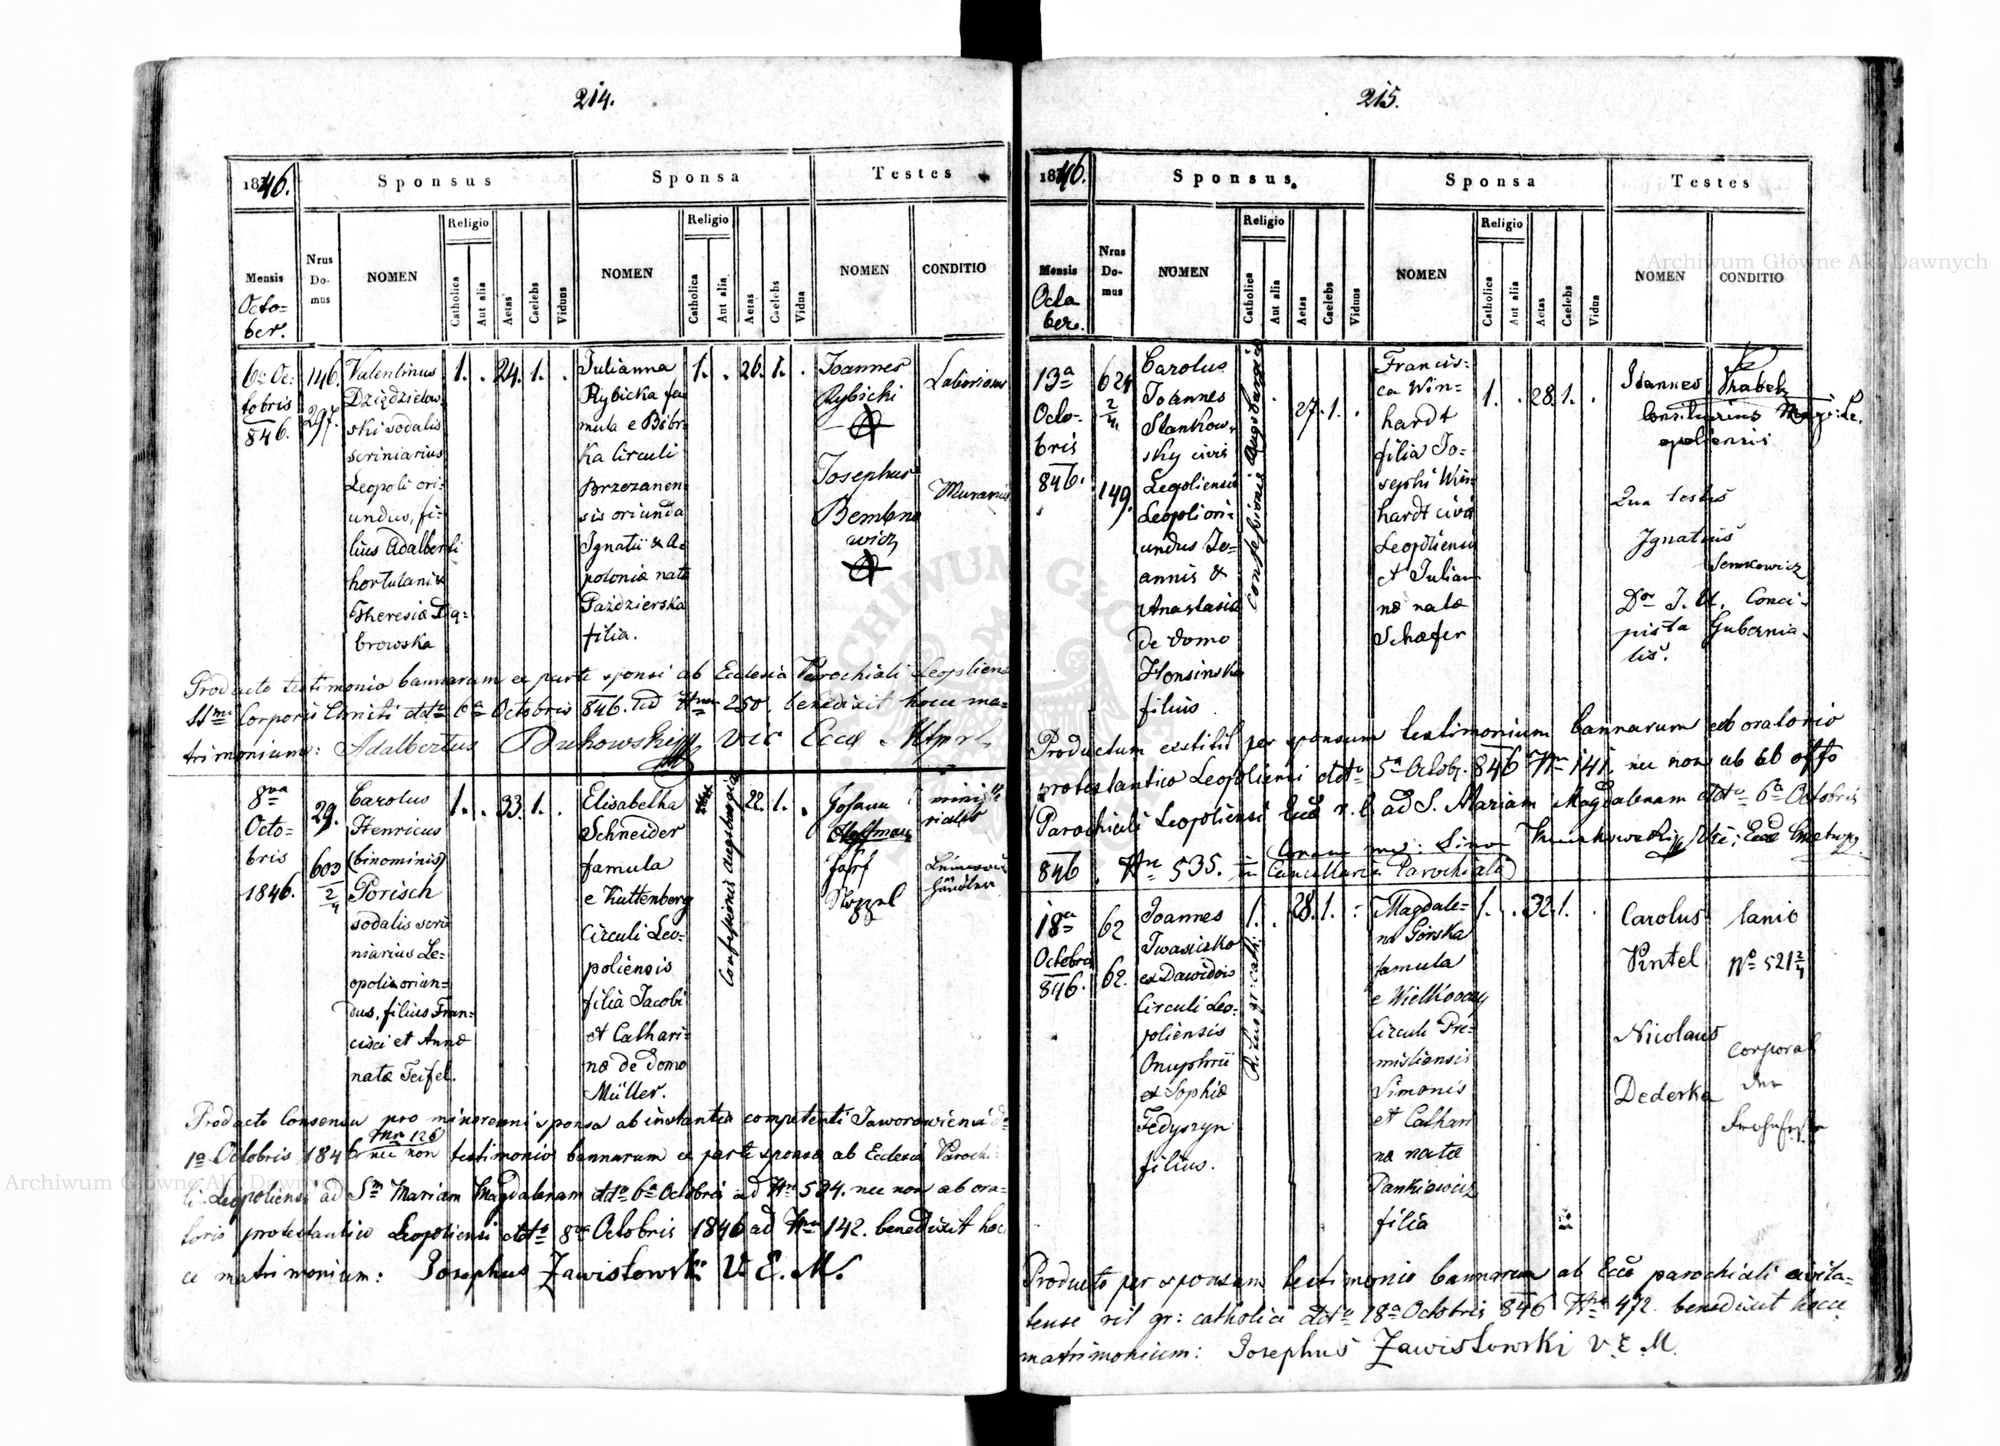 214.
1846.
Sponsus
Sponsa
Testes
Religio
Religio
Mensis
Octo=
ber.
Nrus
Do-
mus
NOMEN
Catholica
Aut alia
Aetas
Caelebs
Viduus
NOMEN
Catholica
Aut alia
Aetas
Caelebs
Vidua
NOMEN
CONDITIO
6a Oc:
tobris
846.
146.
297.
Valentinus
Dziędzielow
ski sodalis
scriniarius
Leopoli ori:
undus, fi:
lius Adalberti
hortulani &
Theresia Dą:
browska
1. . 24. 1. .
Julianna
Rybicka fa
mula e Bóbr
ka Circuli
Brzezanen:
sis oriunda
Ignatii & A:
polonia nata
Paździerska
filia.
1. . 26. 1. .
Joannes
Rybicki
Josephus
Bembno
wicz
Laboriosus
Murarius
Producto testimonio bannorum ex parte sponsi ab Ecclesia Parochiali Leopoliens
SSmi Corporis Christi ddto 6a Octobris 846. ad Nrum 250. benedixit hocce ma=
trimonium: Adalbertus Bukowski Vic Eccae Mtprl
8va
Octo=
bris
1846.
29.
603
2/4
Carolus
Henricus
(binominis)
Porisch
sodalis scri
niarius Le=
opoli orian=
dus, filius Fran=
cisci et Annæ
natæ Teifel.
1. . 33. 1. .
Elisabetha
Schneider
famula
e Kuttenberg
Circuli Leo=
poliensis
filia Jacobi
et Cathari=
næ de domo
Müller.
Confessionis Augsburgica
22. 1. .
Johann
Hoffman
Josef
Stoppel
Producto Consensu pro minorenni sponsa ab instantia competenti Jaworowiensi ddo
1a Octobris 1846 Nro 126 nec non testimonio bannorum ex parte sponsa ab Ecclesia Parochi=
li Leopoliensi ad Sm Mariam Magdalenam ddto 6a Octobris ad Nrm 524. nec non ab ora=
torio protestantico Leopoliensi ddto 8va Octobris 1846 ad Nrm 142. benedixit hoc
ce matrimonium: Josephus Zawisłowski V. E. M.
215.
1846.
Sponsus
Sponsa
Testes
Religio
Religio
Mensis
Octo
ber.
Nrus
Do-
mus
NOMEN
Catholica
Aut alia
Aetas
Caelebs
Viduus
NOMEN
Catholica
Aut alia
Aetas
Caelebs
Vidua
NOMEN
CONDITIO
13a
Octo=
bris
846.
624
2/4
149.
Carolus
Joannes
Stankow=
sky civis
Leopoliensis
Leopoli ori=
undus Jo=
annis &
Anastasia
de domo
Honsinska
filius
Confessionis Augsburgica
. 27. 1. .
Francis=
ca Win=
hardt
filia Jo=
sephi Win=
hardt civis
Leopoliensis
et Julian
næ natæ
Schæfer
1. . 28. 1. .
Joannes Vrabetz
Consiliarius Magis: Le.
opoliensis
Qua testes
Ignatius
Semkowicz
Dor J. U. Conci=
pista Gubernia=
lis.
Productum exstitit per sponsum testimonium bannorum ab oratorio
protestantico Leopoliensi ddto 5a Octobr. 846 Nro 141. nec non ab
Parochiali Leopoliensi Ecca r. l. ad S. Mariam Magdalenam ddto 6a Octobris
846. Nro 535. in Cancellaria Parochiali
18va
Octobris
846.
62
62.
Joannes
Iwasieczko
ex Dawidów
Circuli Leo=
poliensis
Onuphrii
et Sophiæ
Fedyszyn
filius.
Ritus gr. cath:
1. . 28. 1. .
Magdale=
na Górska
famula
e Wielkooczy
Circuli Pre=
misliensis
Simonis
et Cathari
næ natæ
Pankiewicz
filia
1. . 32. 1. .
Carolus
Pintel
lanio
No 521 2/4
Nicolaus
Dederka
Corporal
der
Producto per sponsum testimonio bannorum ab Ecca parochiali civita=
tense rit gr: catholici ddto 18a Octobris 846 Nro 472. benedixit hocce
matrimonium: Josephus Zawisłowski V. E. M.
Archiwum Główne Akt Dawnych
Archiwum Główne Akt Dawnych